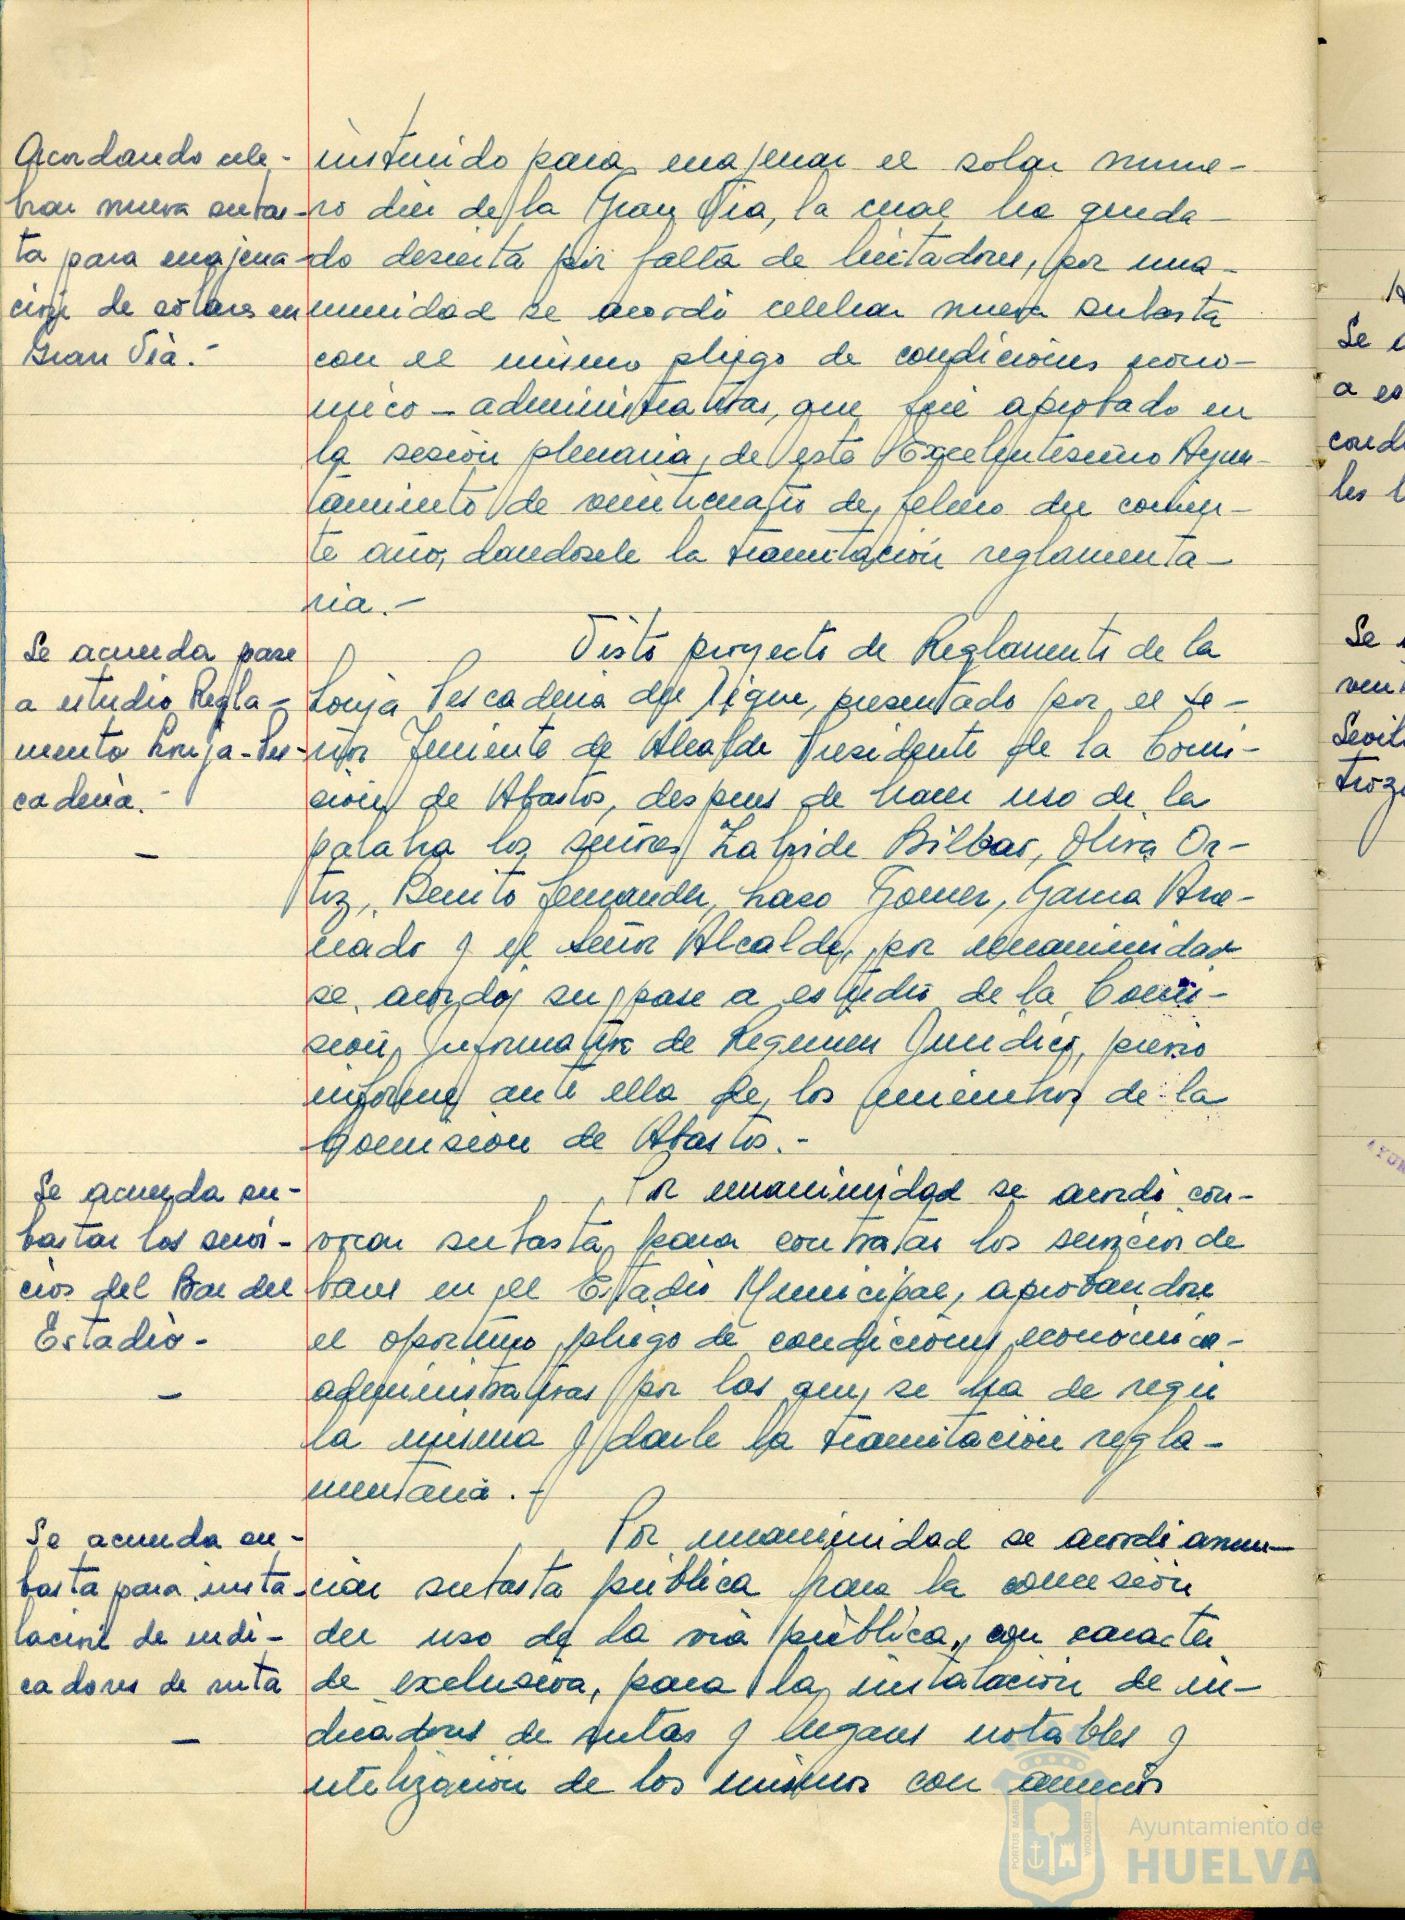 Acordando cele-
brar nueva subas-
ta para enajena-
ción de solares en
Gran Vía.-
instruido para enajenar el solar núme-
ro diez de la Gran Vía, la cual ha queda-
do desierta por falta de licitadores, por una-
nimidad se acordó celebrar nueva subasta
con el mismo pliego de condiciones econo-
mico-administrativas, que fué aprobado en
la sesión plenaria de este Excelentísimo Ayun-
tamiento de veinticuatro de febrero del corrien-
te año, dandosele la tramitación reglamenta-
ria.-
Se acuerda pase
a estudio Regla-
mento Lonja-Pes-
cadería.-
Visto proyecto de Reglamento de la
Lonja Pescadería del Dique, presentado por el se-
ñor Teniente de Alcalde Presidente de la Comi-
sión de Abastos, despues de hacer uso de la
palabra los señores Zabide Bilbao, Oliva Or-
tiz, Benito Fernandez, Lazo Gomez, Garcia Ara-
nado y el señor Alcalde, por unanimidad
se acordó su pase a estudio de la Comi-
sión Informativa de Regimen Juridico, previo
informe ante ella de los miembros de la
Comisión de Abastos.-
Se acuerda su-
bastar los servi-
cios del Bar del
Estadio-
Por unanimidad se acordó con-
vocar subasta para contratar los servicios de
bares en el Estadio Municipal, aprobandose
el oportuno pliego de condiciones economico-
administrativas por las que se ha de regir
la misma y darle la tramitación regla-
mentaria.-
Se acuerda su-
basta para insta-
lación de indi-
cadores de ruta
Por unanimidad se acordó anun-
ciar subasta pública para la concesión
del uso de la vía pública, con caracter
de exclusiva, para la instalación de in-
dicadores de rutas y lugares notables y
utilización de los mismos con anuncios
Se
a es
cond
les
Se
ven
Sevil
troz
PORTUS MARIS
CUSTODIA
Ayuntamiento de
HUELVA